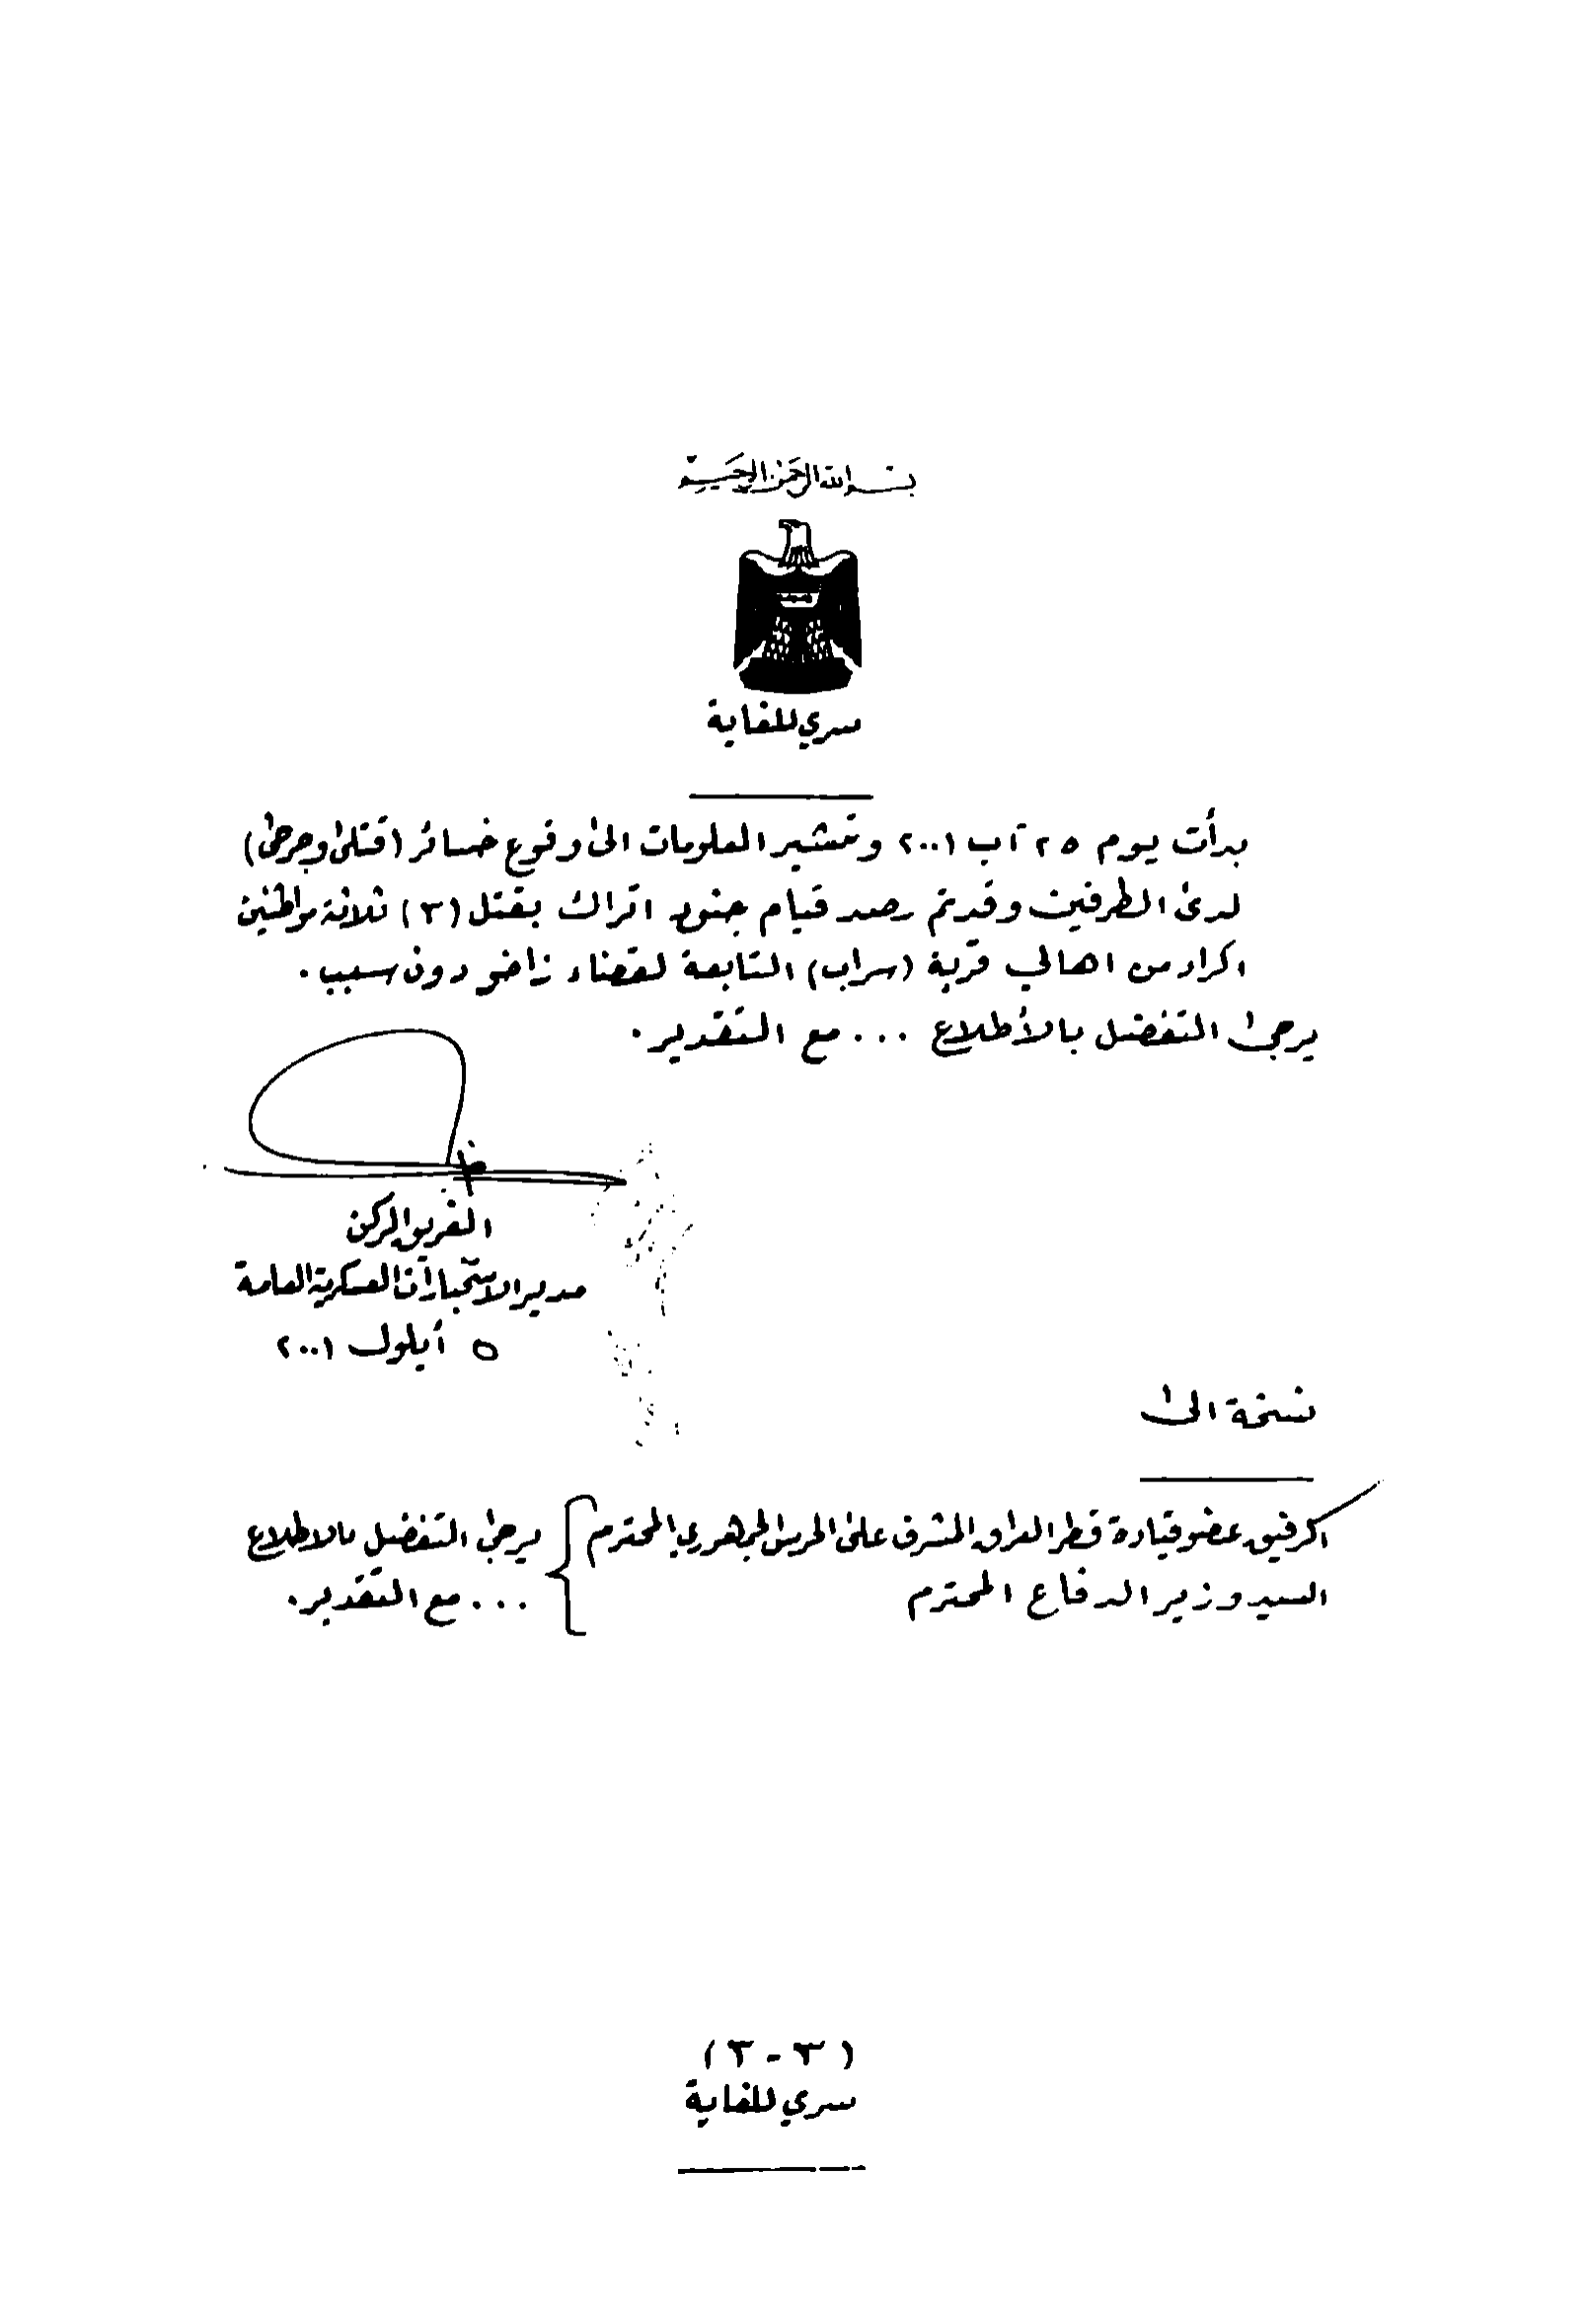 بسم الله الرحمن الرحيم
سري للغاية
بدأت يوم ٢٥ آب ٢٠٠١ وتشير المعلومات الى وقوع خسائر (قتلى وجرحى)
لدى الطرفين وقد تم رصد قيام جنود اتراك بقتل (٣) ثلاثة مواطنين
اكراد من اهالي قرية (سراب) التابعة لقضاء زاخو دون سبب.
يرجى التفضل بالأطلاع ... مع التقدير.
الفريق الركن
مدير الاستخبارات العسكرية العامة
٥ أيلول ٢٠٠١
نسخة الى
الرفيق عضو قيادة قطر العراق المشرف على الحرس الجمهوري المحترم } يرجى التفضل بالاطلاع
السيد وزير الدفاع المحترم ... مع التقدير.
(٣-٣)
سري للغاية